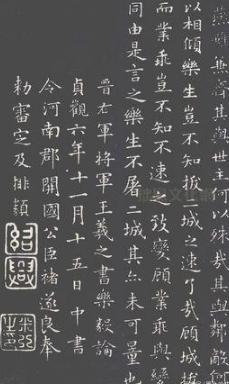 燕雖兼齊其與世主何以殊哉其與鄰敵何
以相傾樂生豈不知拔城之速了哉顧城拔
而業乖豈不知不速之致變顧業乖與變
同由是言之樂生不屠二城其亦未可量也
晉右軍將軍王羲之書樂毅論
貞觀六年十一月十五日中書
令河南郡開國公臣褚遂良奉
勅審定及排類
紹興